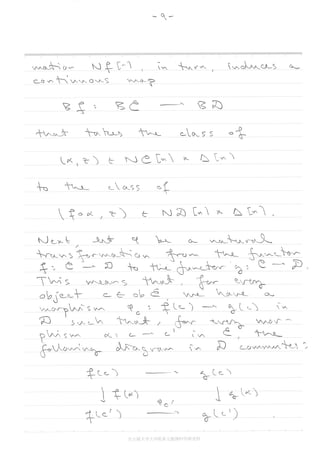 - 9 -
mation Nf[-], in turn, induces a
continuous map
Bf : BC → BD
that takes the class of
(α, t) ∈ NC[n] × Δ[n]
to the class of
(f∘α, t) ∈ ND[n] × Δ[n].
Next, let φ be a natural
transformation from the functor
f: C → D to the functor g: C → D.
This means that, for every
object c ∈ ob C, we have a
morphism φ_c : f(c) → g(c) in
D such that, for every mor-
phism α: c → c' in C, the
following diagram in D commutes:
f(c) → g(c)
↓ f(α) ↓ g(α)
φ_c'
f(c') → g(c')